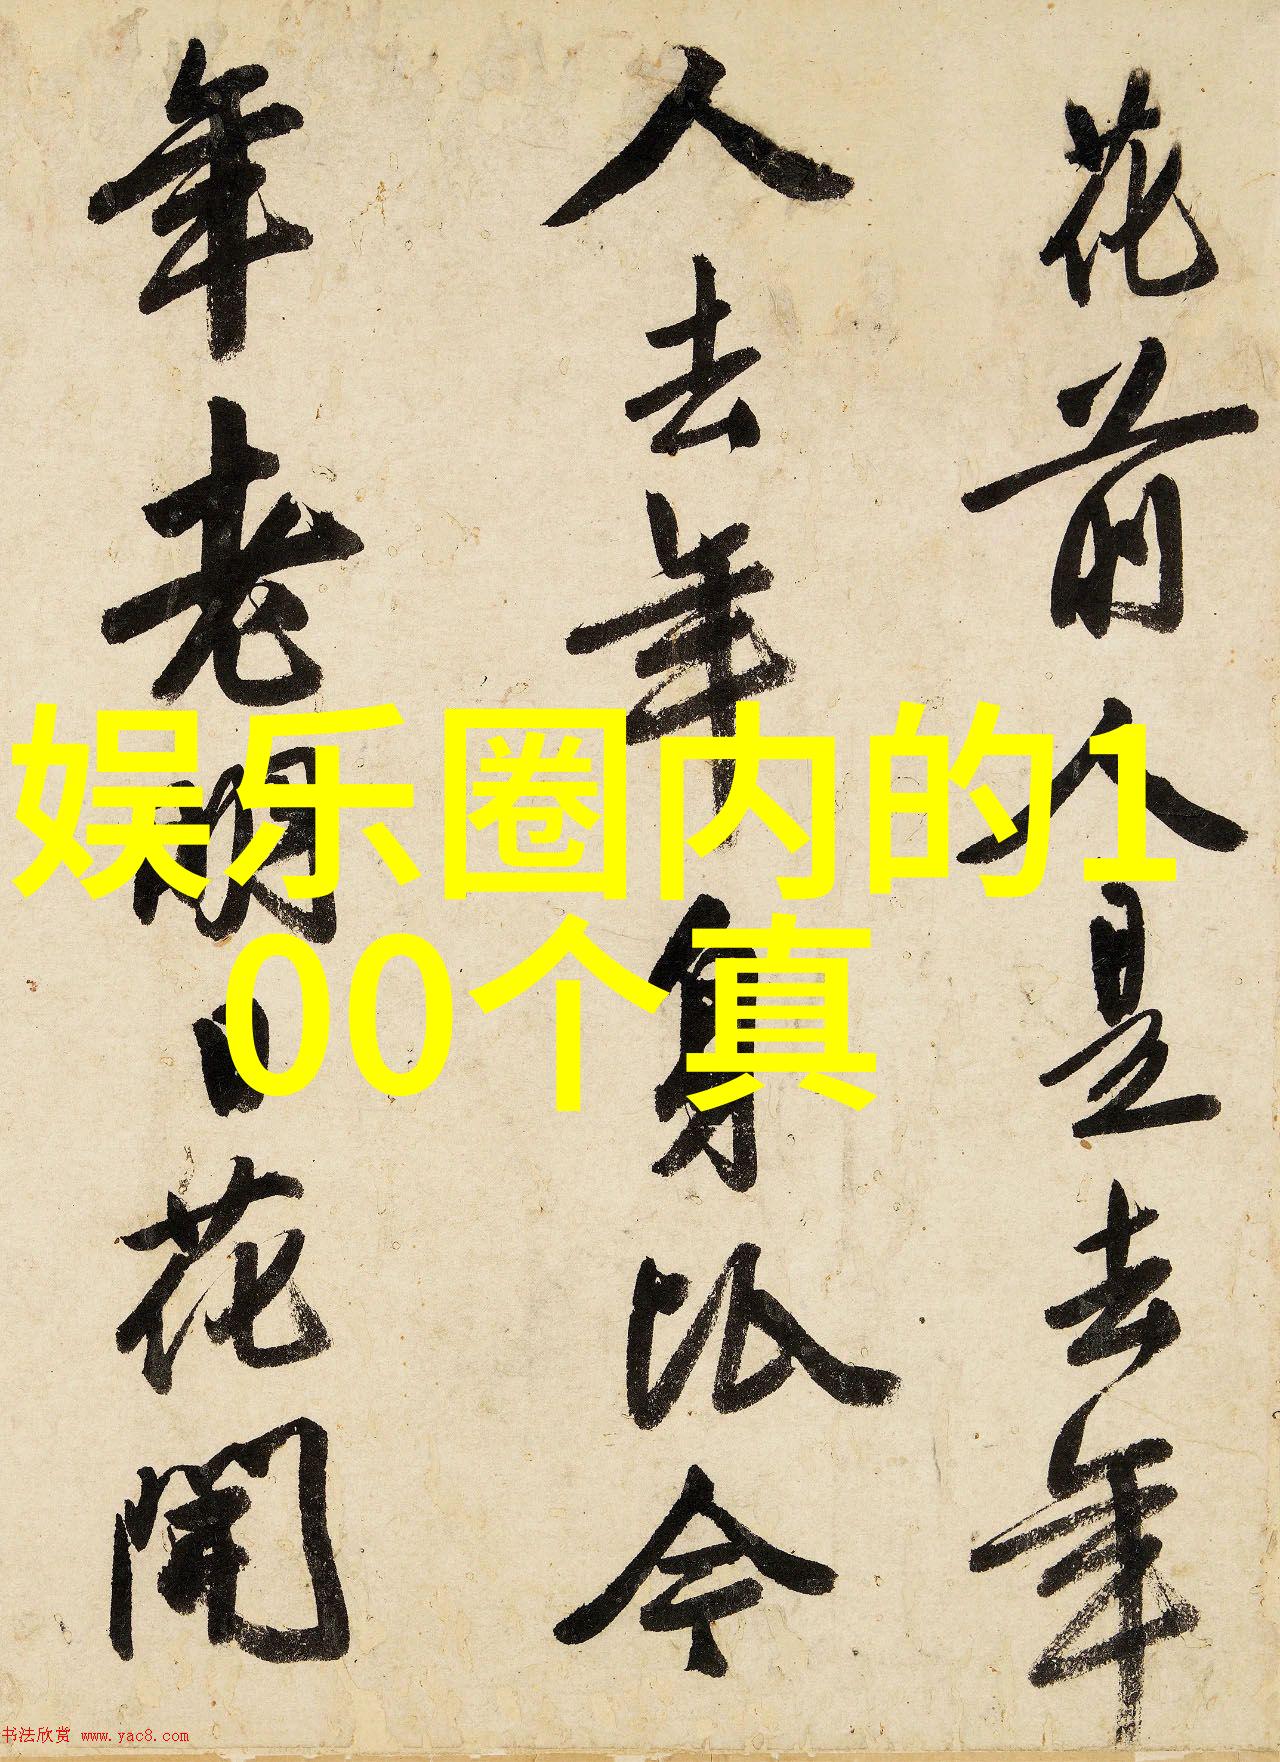 花前人是去年
人去年身比今
年老明日花開
娱乐圈内的1
00个真
书法欣赏 www.yac8.com